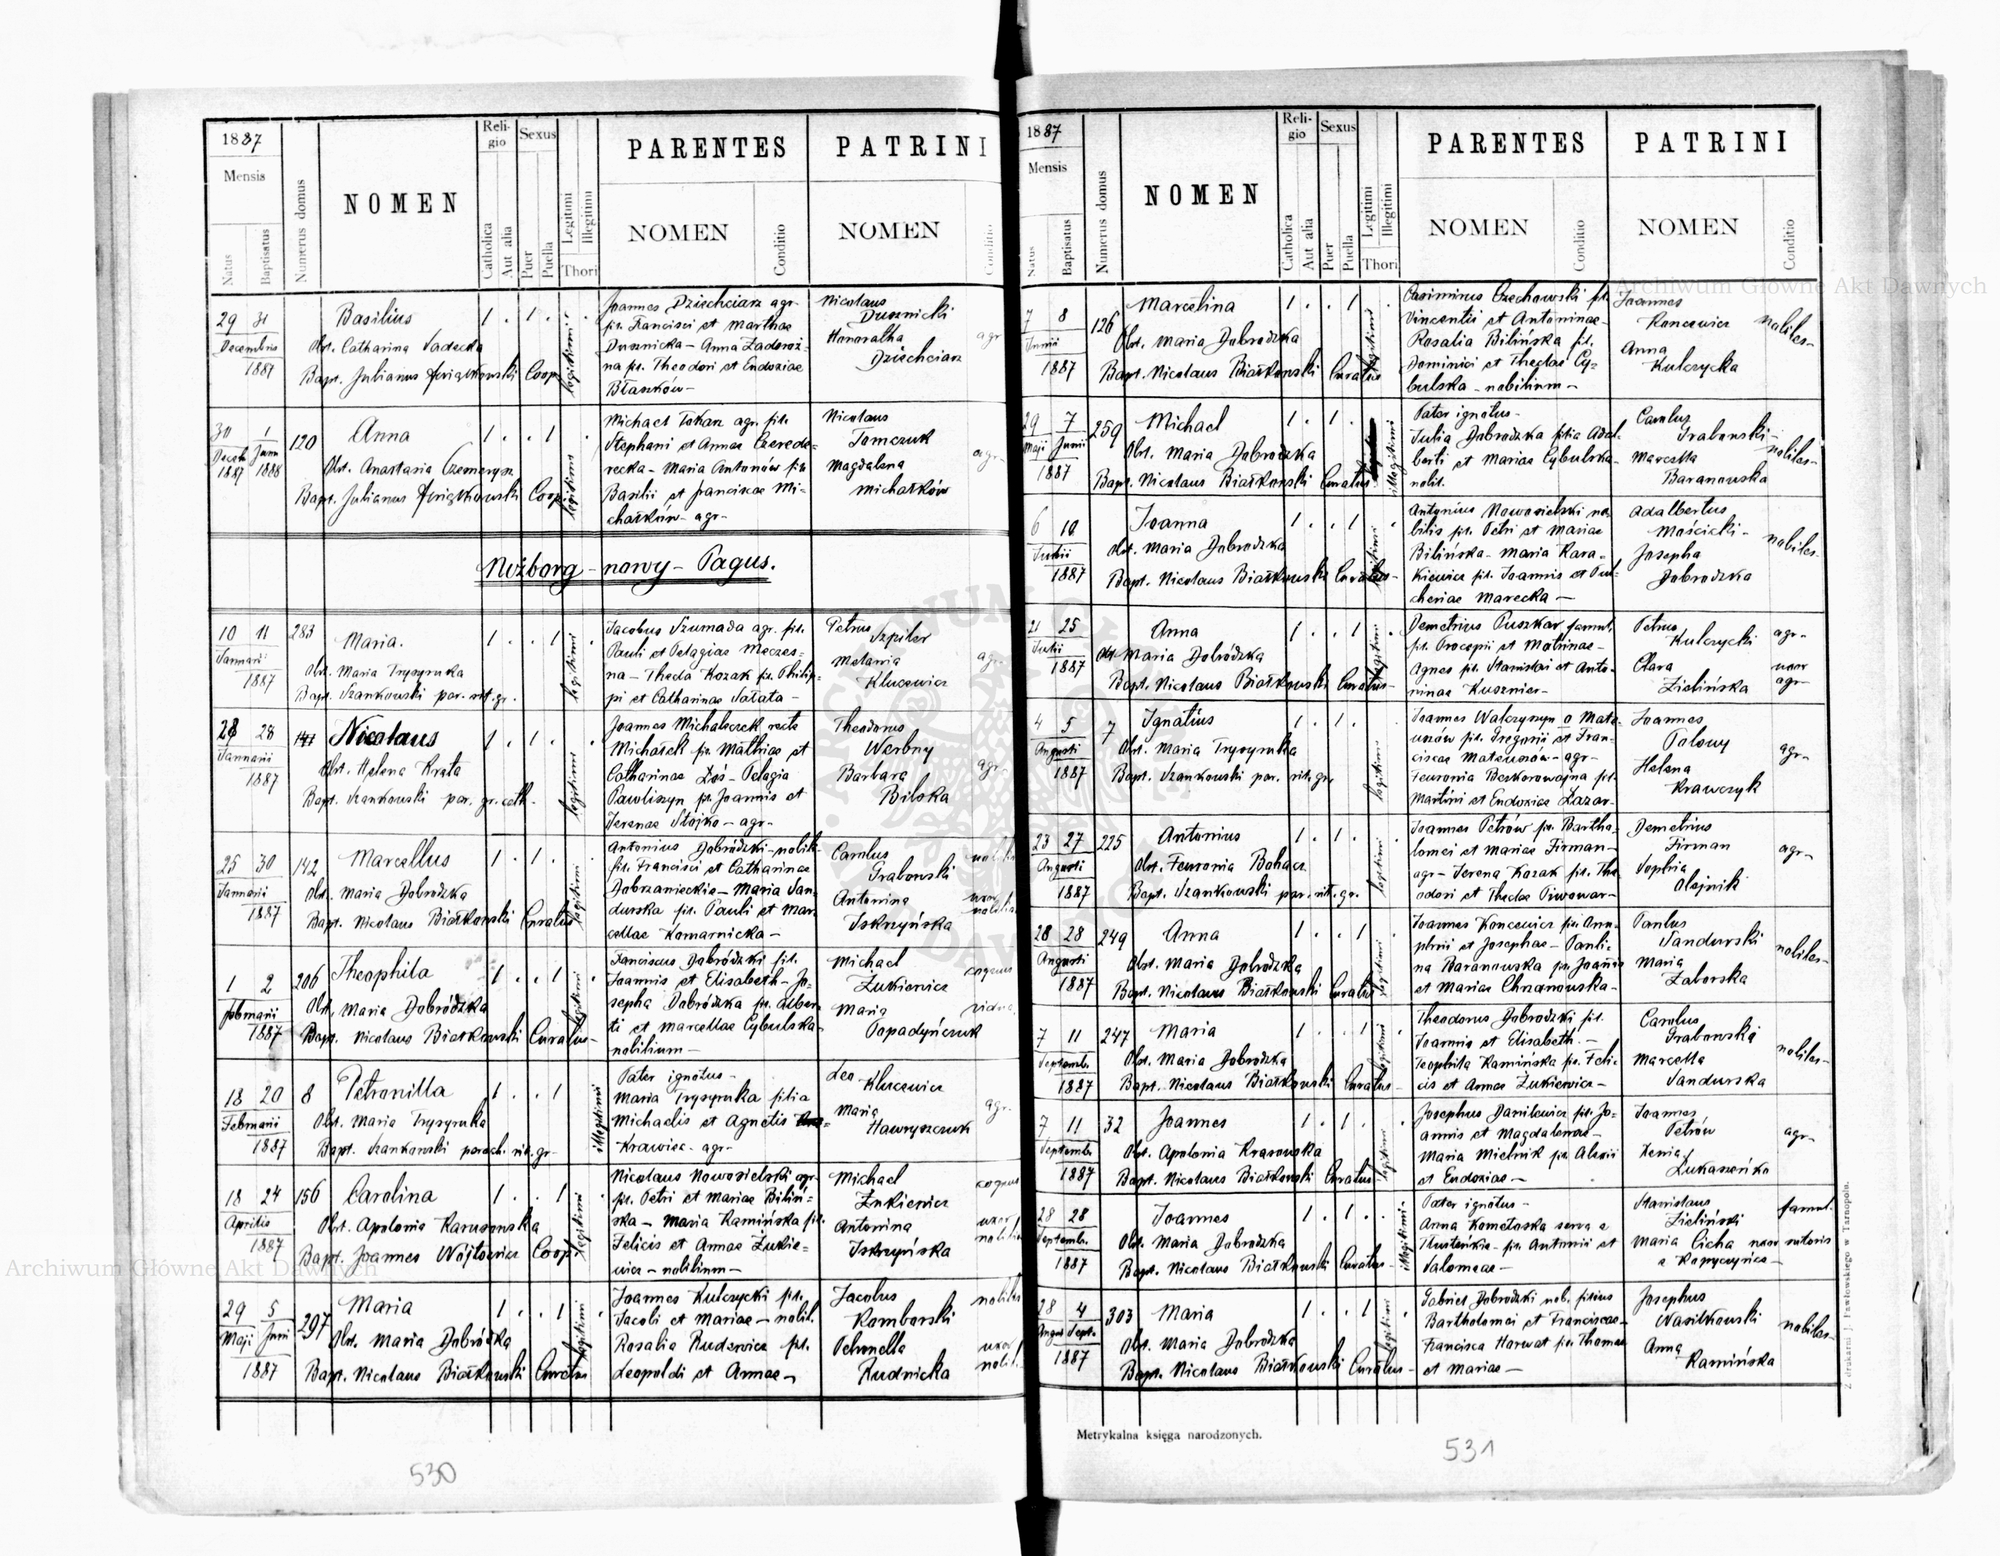 1887
Mensis
Natus
Baptisatus
Numerus domus
NOMEN
Religio
Catholica
Aut alia
Sexus
Puer
Puella
Legitimi
Illegitimi
Thori
PARENTES
NOMEN
Conditio
PATRINI
NOMEN
Conditio
29 31
Decembris
1887
Basilius
Obst. Catharina Sadecka
Bapt. Julianus Kwiatkowski Coop.
1 . 1 .
legitimi
Joannes Dziechciarz agr.
fil. Francisci et Marthae
Dusznicka - Anna Zadoroż-
na fil. Theodori et Eudoxiae
Błaszków -
Nicolaus
Dusznicki
Honoratha
Dziechciarz
agr
30 1
Decemb. Janu.
1887 1888
120
Anna
Bapt. Julianus Kwiatkowski Coop.
1 . . 1
legitimi
Michael Tokarz agr. fil.
Stephani et Annae Czerede-
recka - Maria Antonów fil.
Basilii et Franciscae Mi-
chałków - agr -
Nicolaus
Tomczuk
Magdalena
Michałków
agr -
Niżborg - nowy - Pagus.
10 11
Januarii
1887
283
Maria.
Obst. Maria Trysyruka
Bapt. Szankowski par. rit. gr.
1 . . 1
legitimi
Jacobus Szumada agr. fil.
Pauli et Pelagiae Meczes-
na - Thecla Kozak fil. Philip-
pi et Catharinae Sałata -
Petrus
Szpiler
Melania
Klucewicz
agr.
28 28
Januarii
1887
141
Nicolaus
Obst. Helena Krata
Bapt. Szankowski par. gr. cath.
1 . 1 .
legitimi
Joannes Michalczek recte
Michałek fil. Mathiae et
Catharinae Łoś - Pelagia
Pawliszyn fil. Joannis et
Irenae Stojko - agr -
Theodorus
Werbny
Barbara
Bilska
agr.
25 30
Januarii
1887
142
Marcellus
Obst. Maria Dobrodzka
Bapt. Nicolaus Białkowski Curatus
1 . 1 .
legitimi
Antonius Dobródzki - nobilis
fil. Francisci et Catharinae
Dobrzanieckie - Maria San-
durska fil. Pauli et Mar-
cellae Komarnicka -
Carolus
Grabowski
Antonina
Iskrzyńska
1 2
Februarii
1887
206
Theophila
Obst. Maria Dobródzka
Bapt. Nicolaus Białkowski Curatus -
1 . . 1
legitimi
Franciscus Dobródzki fil.
Joannis et Elisabeth - Jo-
sepha Dobródzka fil. Alber-
ti et Marcellae Cybulska -
nobilium -
Michael
Żukiewicz
Maria
Popadyńczuk
18 20
Februarii
1887
8
Petronilla
Obst. Maria Trysyruka
Bapt. Szankowski paroch. rit. gr.
1 . . 1
illegitimi
Pater ignotus -
Maria Trysyruka filia
Michaelis et Agnetis
Krawiec - agr -
Leo
Klucewicz
Maria
Hawryszczuk
agr.
18 24
Aprilis
1887
156
Carolina
Obst. Apolonia Karusowska
Bapt. Joannes Wojtowicz Coop.
1 . . 1
legitimi
Nicolaus Nowosielski agr
fil. Petri et Mariae Biliń-
ska - Maria Kamińska fil.
Felicis et Annae Żukie-
wicz - nobilium -
Michael
Żukiewicz
Antonina
Iskrzyńska
29 5
Maji Junii
1887
297
Maria
Obst. Maria Dobródzka
Bapt. Nicolaus Białkowski Curatus
1 . . 1
legitimi
Joannes Kulczycki fil.
Jacobi et Mariae - nobil.
Rosalia Rudewicz fil.
Leopoldi et Annae -
Jacobus
Komborski
Petronella
Rudnicka
530
1887
Mensis
Natus
Baptisatus
Numerus domus
NOMEN
Religio
Catholica
Aut alia
Sexus
Puer
Puella
Legitimi
Illegitimi
Thori
PARENTES
NOMEN
Conditio
PATRINI
NOMEN
Conditio
7 8
Junii
1887
126
Marcelina
Obst. Maria Dobrodzka
Bapt. Nicolaus Białkowski Curatus
1 . . 1
legitimi
Casimirus Czechowski fil.
Vincentii et Antoninae -
Rosalia Bilińska fil.
Dominici et Theclae Cy-
bulska - nobilium -
Joannes
Koncewicz
Anna
Kulczycka
nobiles -
29 7
Maji Junii
1887
259
Michael
Obst. Maria Dobrodzka
Bapt. Nicolaus Białkowski Curatus
1 . 1 .
illegitimi
Pater ignotus -
Julia Dobrodzka filia Adal-
berti et Mariae Cybulska -
nobil.
Carolus
Grabowski -
Marcella
Baranowska
nobiles -
6 10
Julii
1887
Joanna
Obst. Maria Dobrodzka
Bapt. Nicolaus Białkowski Curatus -
1 . . 1
legitimi
Antonius Nowosielski no-
bilis fil. Petri et Mariae
Bilińska - Maria Kara-
kiewicz fil. Joannis et Pul-
cheriae Marecka -
Adalbertus
Mościcki -
Josepha
Dobrodzka
nobiles -
21 25
Julii
1887
Anna
Obst. Maria Dobródzka
Bapt. Nicolaus Białkowski Curatus -
1 . . 1
legitimi
Demetrius Puszkar famul.
fil. Procopii et Matrinae -
Agnes fil. Stanislai et Anto-
ninae Kusznier -
Petrus
Kulczycki agr -
Clara
Zielińska
uxor
agr -
4 5
Augusti
1887
7
Ignatius
Obst. Maria Trysyruka
Bapt. Szankowski par. rit. gr.
1 . 1 .
legitimi
Joannes Walczyszyn o Mate-
uszów fil. Gregorii et Fran-
ciscae Mateuszów - agr -
Feuronia Beskorowajna fil.
Martini et Eudoxiae Łazar -
Joannes
Palowy
Helena
Krawczyk
agr -
23 27
Augusti
1887
225
Antonius
Obst. Feuronia Bohacz
Bapt. Szankowski par. rit. gr.
1 . 1 .
legitimi
Joannes Petrów fil. Bartho-
lomei et Mariae Firman -
agr - Irena Kozak fil. The-
odori et Theclae Piwowar -
Demetrius
Firman
Sophia
Olejnik
agr -
28 28
Augusti
1887
249
Anna
Obst. Maria Dobrodzka
Bapt. Nicolaus Białkowski Curatus
1 . . 1
legitimi
Joannes Koncewicz fil. Onu-
phrii et Josephae - Pauli-
na Baranowska fil. Joannis
et Mariae Chrzanowska -
Paulus
Sandurski
Maria
Zaborska
nobiles -
7 11
Septemb.
1887
247
Maria
Obst. Maria Dobrodzka
Bapt. Nicolaus Białkowski Curatus -
1 . . 1
legitimi
Theodorus Dobrodzki fil.
Joannis et Elisabeth. -
Teophila Kamińska fil. Feli-
cis et Annae Żukiewicz -
Carolus
Grabowski
Marcella
Sandurska
nobiles -
7 11
Septembr.
1887
32
Joannes
Obst. Apolonia Krasowska
Bapt. Nicolaus Białkowski Curatus -
1 . 1 .
legitimi
Josephus Danilewicz fil. Jo-
annis et Magdalenae -
Maria Mielnik fil. Alexii
et Eudoxiae -
Joannes
Petrów
Xenia
Łukaszeńko
agr -
28 28
Septembr.
1887
Joannes
Obst. Maria Dobrodzka
Bapt. Nicolaus Białkowski Curatus -
1 . 1 .
illegitimi
Pater ignotus -
Anna Kometoska serva e
fil. Antonii et
Salomeae -
Stanislaus
Zieliński
famul.
Maria Cicha uxor sutoris
e Kopyczyńce -
28 4
August Sept.
1887
303
Maria
Obst. Maria Dobródzka
Bapt. Nicolaus Białkowski Curatus -
1 . . 1
legitimi
Gabriel Dobrodzki nob. filius
Bartholomei et Franciscae -
Francisca Horwat fil. Thomae
et Mariae -
Josephus
Wasilkowski
Anna
Kamińska
nobiles -
Metrykalna księga narodzonych.
Z drukarni J. Pawłowskiego w Tarnopolu.
531
Archiwum Główne Akt Dawnych
Archiwum Główne Akt Dawnych